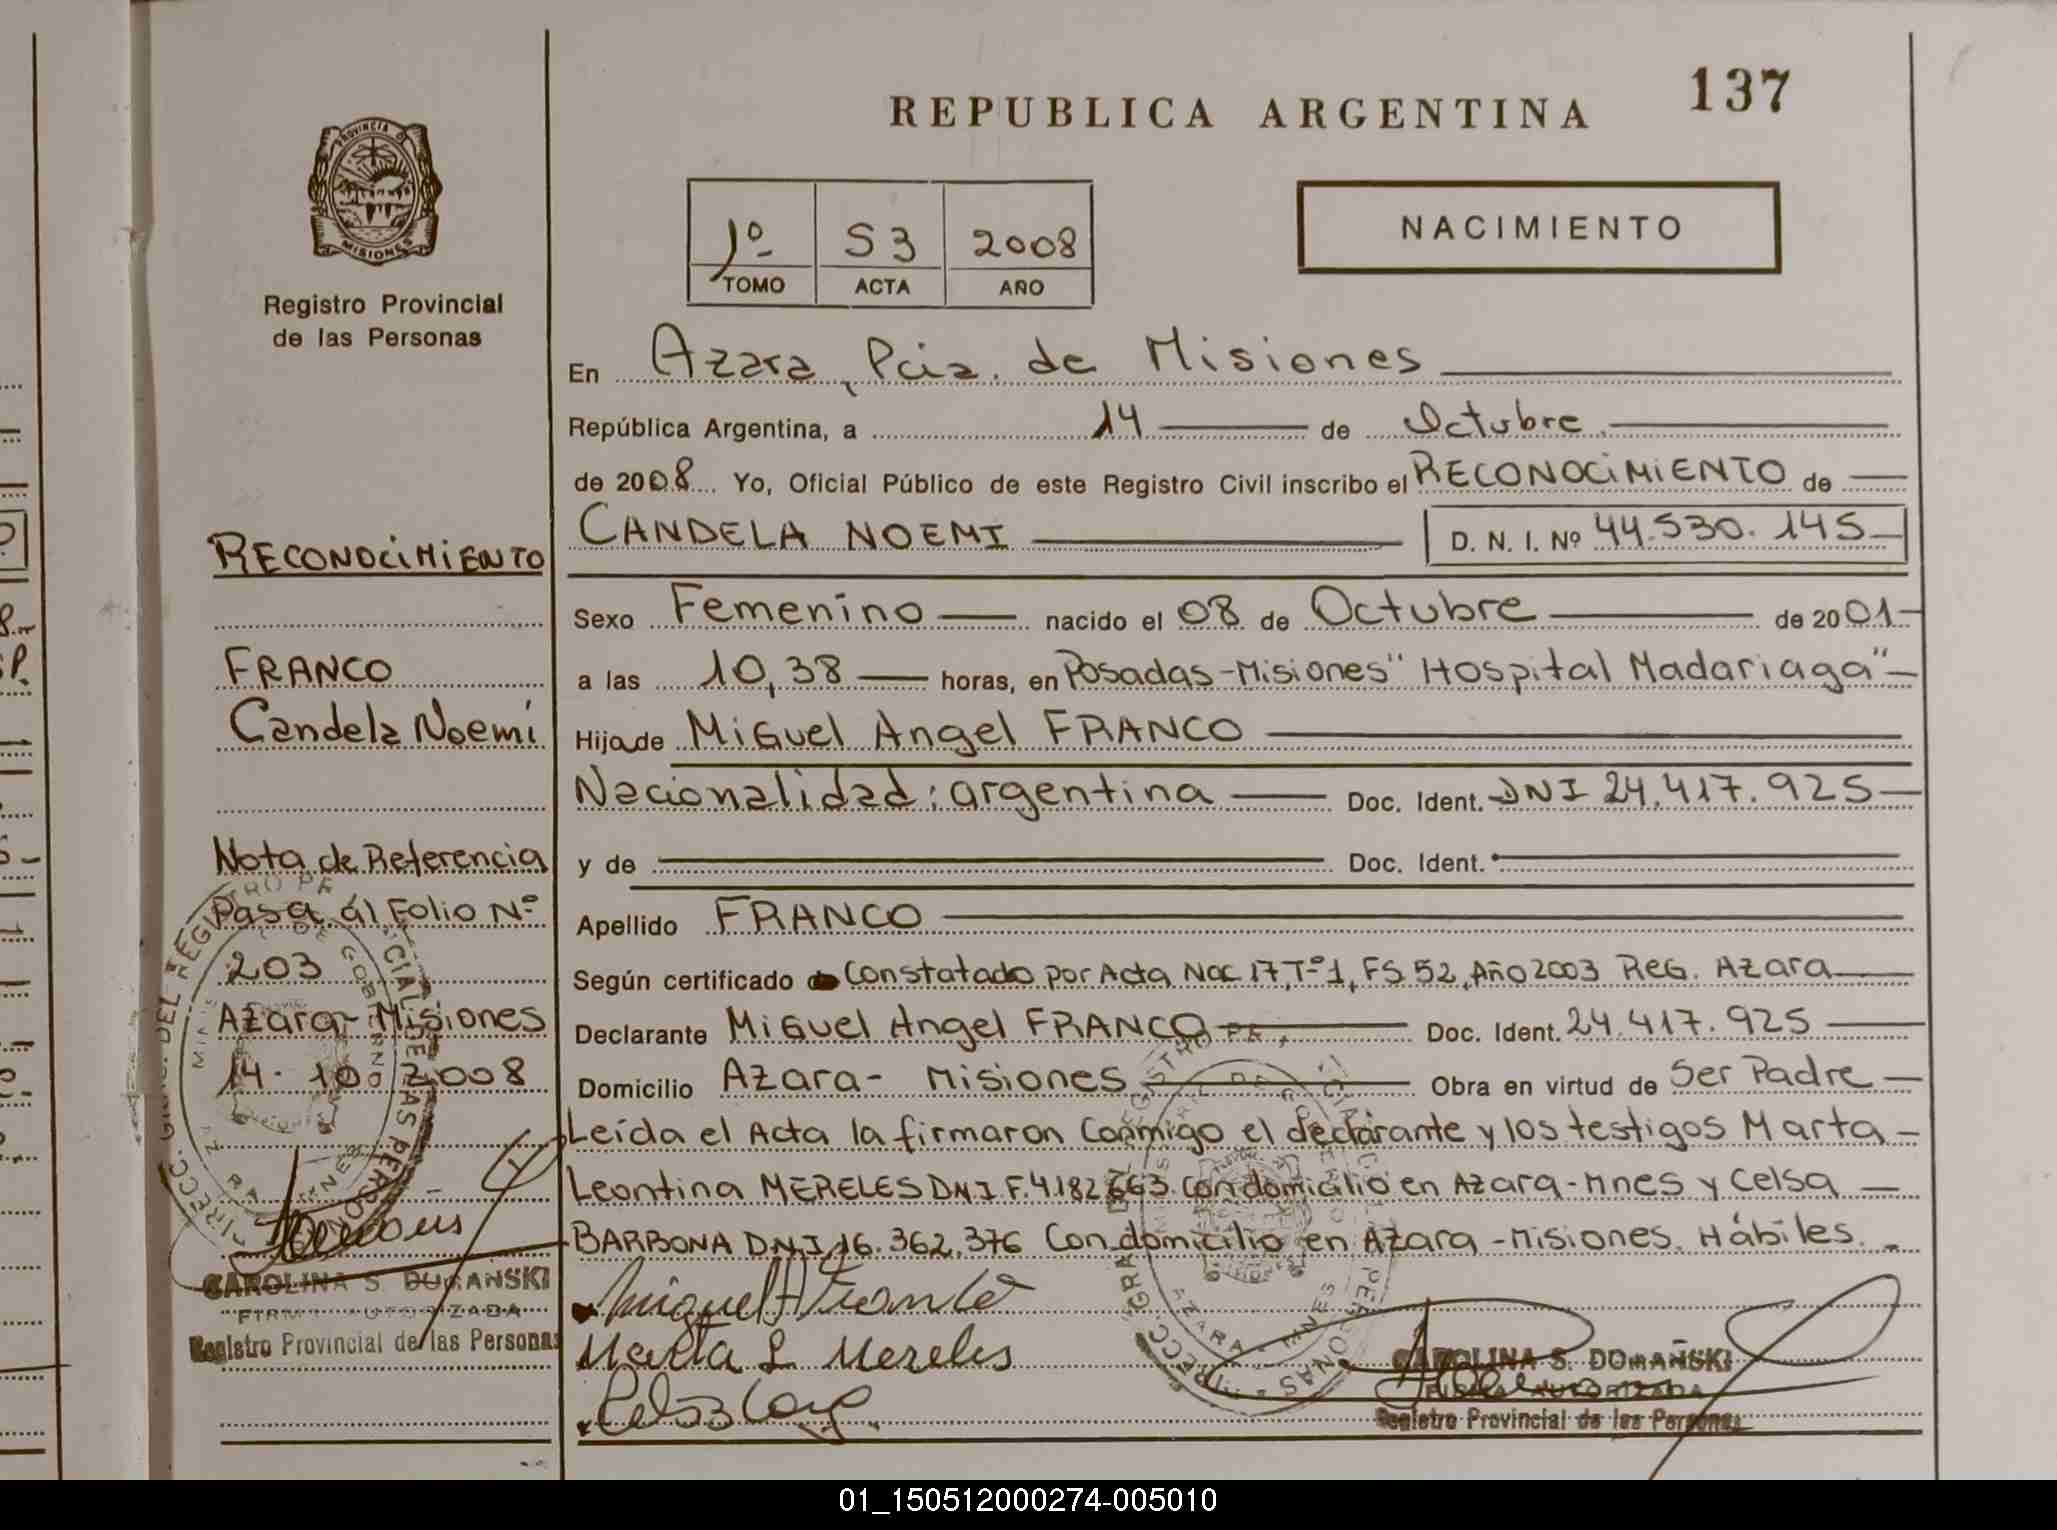 137
REPUBLICA ARGENTINA
PROVINCIA DE
MISIONES
Registro Provincial
de las Personas
1º S3 2008
TOMO ACTA AÑO
NACIMIENTO
En Azara, Pcia. de Misiones
República Argentina, a 14 de Octubre
de 2008 Yo, Oficial Público de este Registro Civil inscribo el RECONOCIMIENTO de
CANDELA NOEMI D. N. I. Nº 44.530.145
Sexo Femenino nacido el 08 de Octubre de 2001
a las 10,38 horas, en Posadas-Misiones "Hospital Madariaga"
Hija de Miguel Angel FRANCO
Nacionalidad: argentina Doc. Ident. DNI 24.417.925
y de Doc. Ident.
Apellido FRANCO
Según certificado Constatado por Acta Nac 17, Tº1, FS 52, Año 2003 Reg. Azara
Declarante Miguel Angel FRANCO Doc. Ident. 24.417.925
Domicilio Azara - Misiones Obra en virtud de Ser Padre
Leída el Acta la firmaron Conmigo el declarante y los testigos Marta
Leontina MERELES DNI F.4182663 Con domicilio en Azara-Mnes y Celsa
BARBONA DNI 16.362.376 Con domicilio en Azara - Misiones. Hábiles.
Miguel A Franco
Marta L Mereles
Celsa
CAROLINA S. DOMAÑSKI
FIRMA AUTORIZADA
Registro Provincial de las Personas
RECONOCIMIENTO
FRANCO
Candela Noemí
Nota de Referencia
Pasa al Folio Nº
203
Azara-Misiones
14-10-2008
CAROLINA S. DOMAÑSKI
FIRMA AUTORIZADA
Registro Provincial de las Personas
01_150512000274-005010